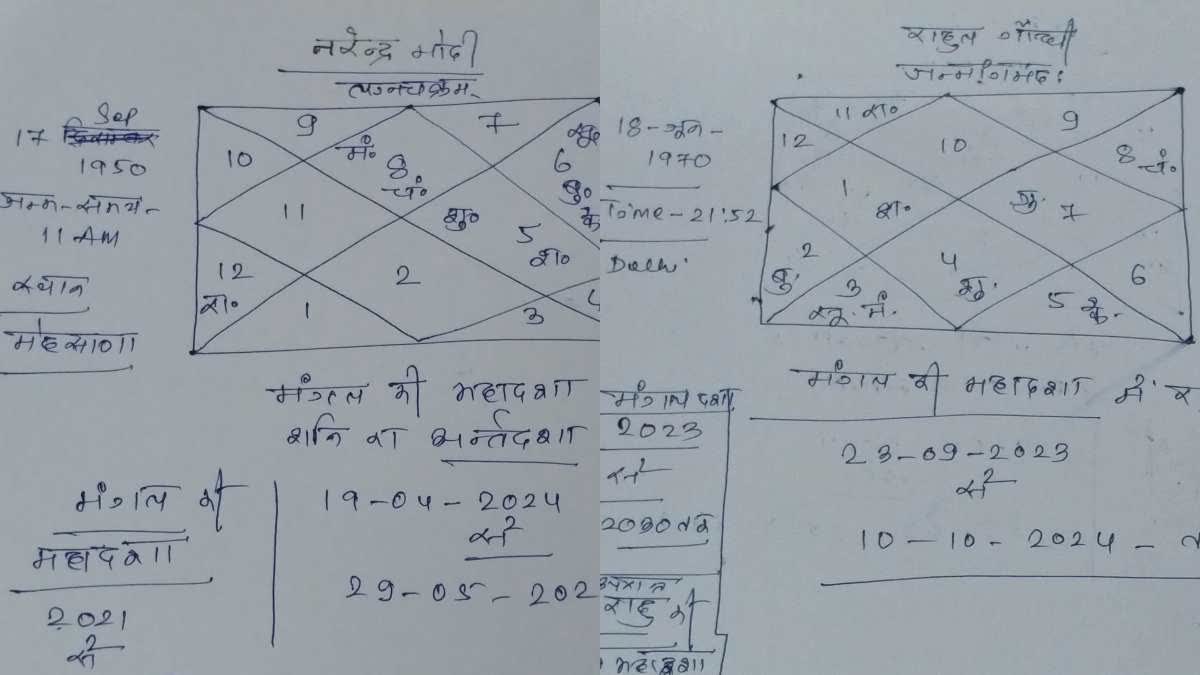 नरेन्द्र मोदी
लग्नचक्रम-
17 Sep
1950
जन्म-समय-
11 AM
स्थान
मेहसाणा
9
7
10
मं०
8
चं०
सू०
6
बु०
के
11
शु०
5
श०
12
रा०
2
1
3
4
मंगल की महादशा
शनि का अर्न्तदशा
मंगल की
महादशा
2021
से
19-04-2024
से
29-05-202
राहुल गाँन्धी
जन्मांगमिदं:
18-जून-
1970
Time-21:52
Delhi
11 रा०
9
12
10
8
चं०
1
श०
गु.
7
2
बु.
4
शु.
6
3
सू. मं.
5
के.
मंगल की महादशा में र
23-09-2023
से
10-10-2024-त
मंगल दशा
2023
से
2030 तक
उपरान्त
राहु की
महादशा